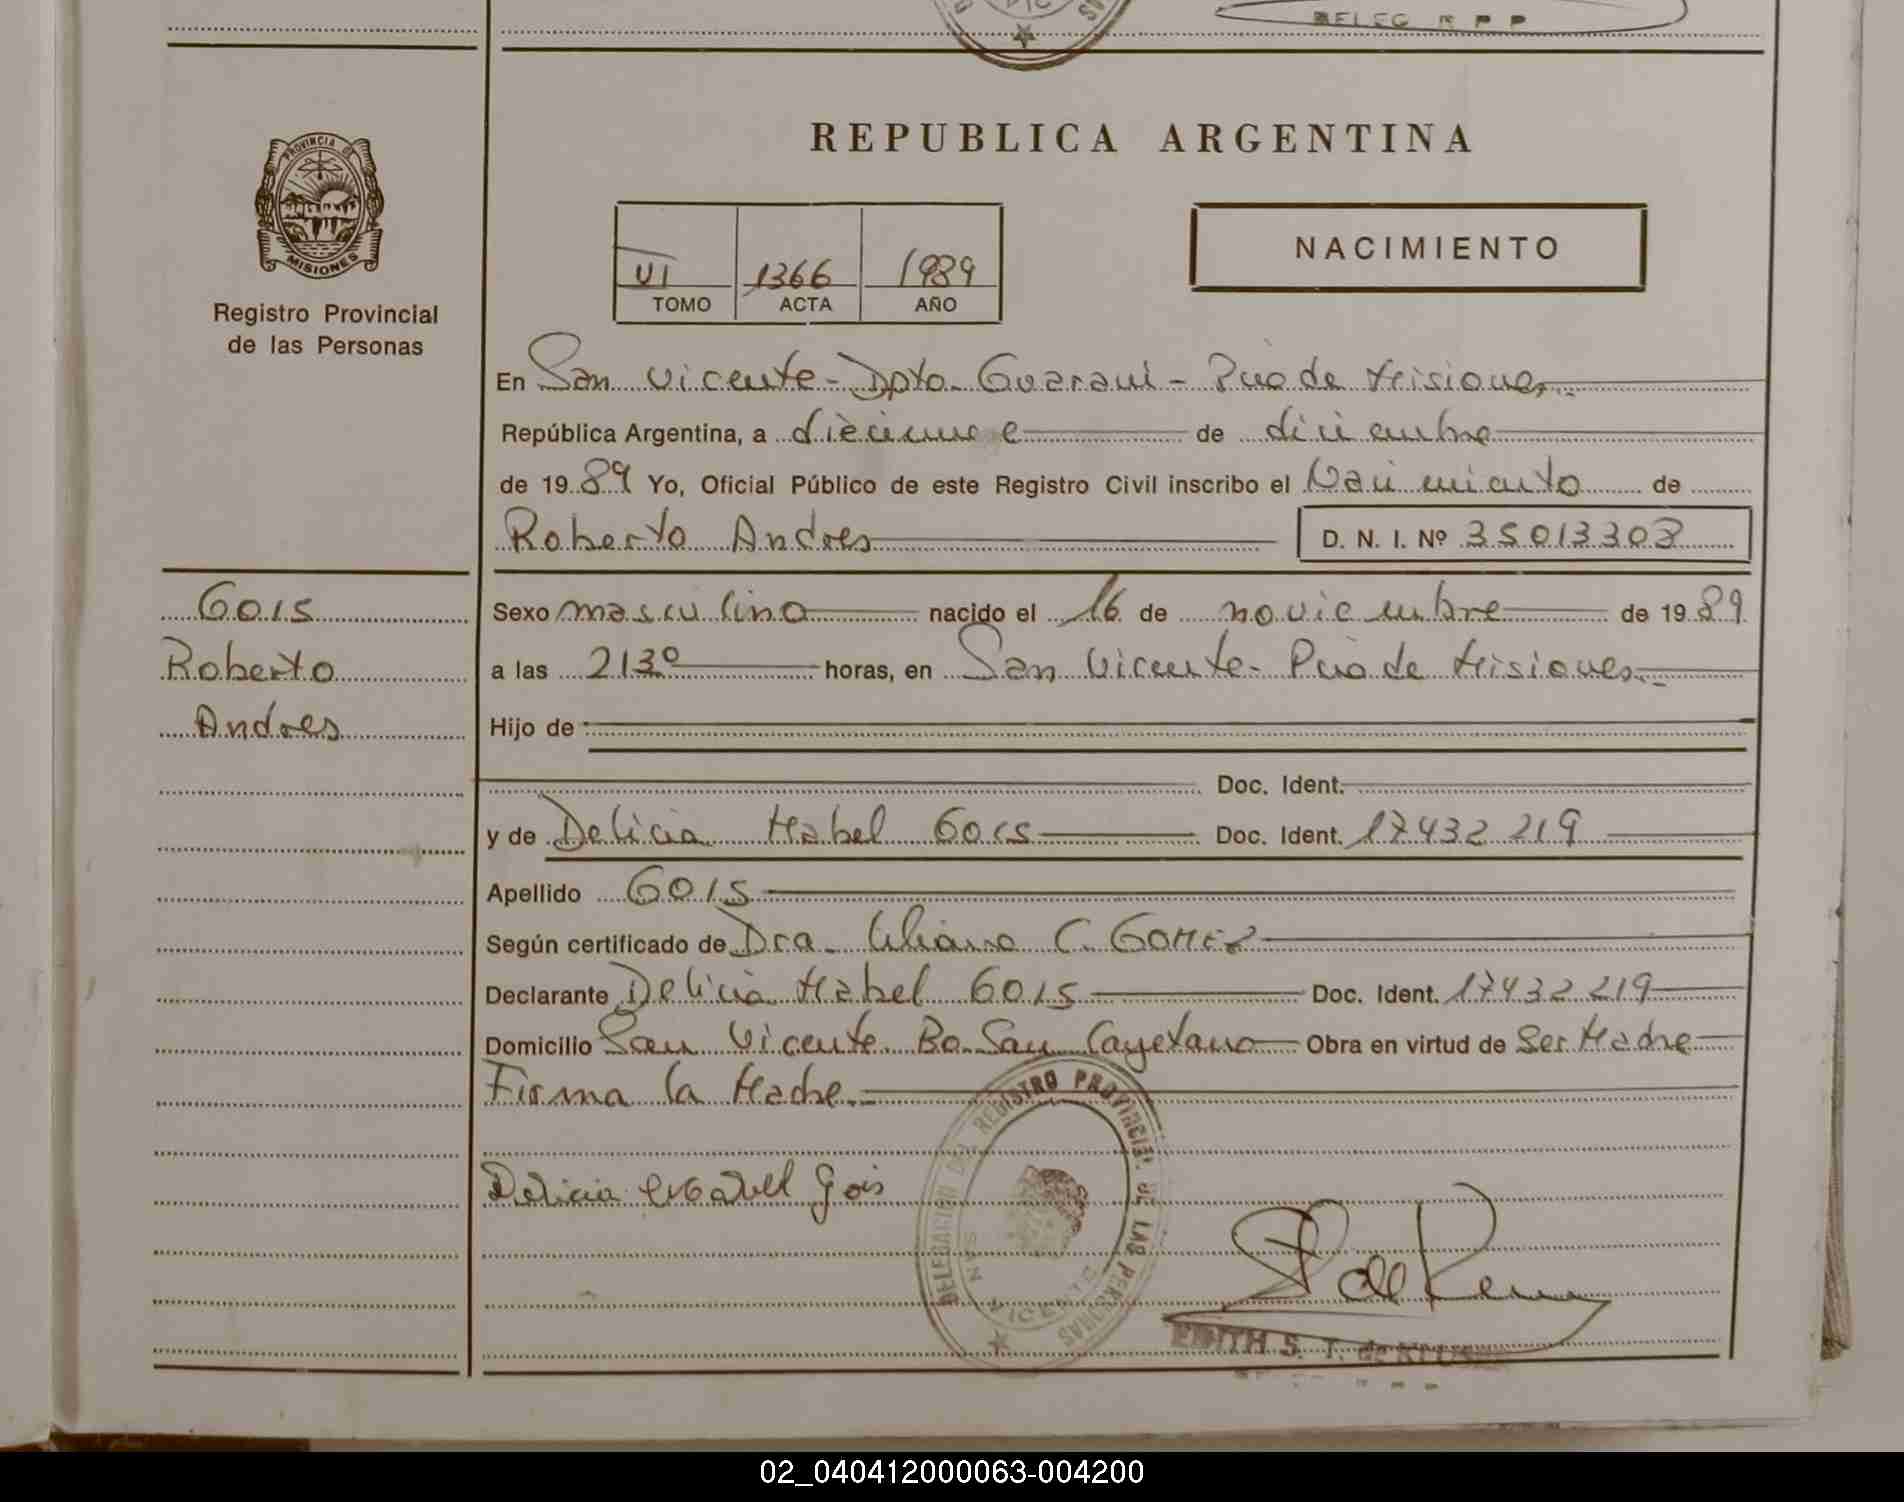 DELEG R P P
REPUBLICA ARGENTINA
PROVINCIA DE
MISIONES
Registro Provincial
de las Personas
NACIMIENTO
VI 1366 1989
TOMO ACTA AÑO
En San Vicente - Dpto. Guarani - Pcia de Misiones
República Argentina, a diecinueve de diciembre
de 1989 Yo, Oficial Público de este Registro Civil inscribo el Nacimiento de
Roberto Andres D. N. I. Nº 35013303
GOIS
Roberto
Andres
Sexo masculino nacido el 16 de noviembre de 1989
a las 2130 horas, en San Vicente - Pcia de Misiones.
Hijo de
Doc. Ident.
y de Delicia Mabel Gois Doc. Ident. 17432219
Apellido GOIS
Según certificado de Dra. Liliana C. GOMEZ
Declarante Delicia Mabel GOIS Doc. Ident. 17432219
Domicilio San Vicente Bo. San Cayetano Obra en virtud de Ser Madre
Firma la Madre.
Delicia Gois
DELEGACION DEL REGISTRO PROVINCIAL DE LAS PERSONAS
EDITH S. T. de
02_040412000063-004200